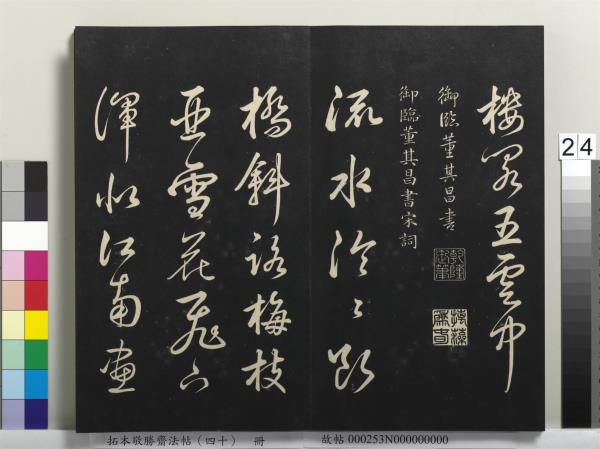 樓閣五雲中
御臨董其昌書
乾隆御筆
摛藻為春
御臨董其昌書宋詞
流水泠〻斷
橋斜路梅枝
亞雪花飛下
渾似江南畫
24
拓本敬勝齋法帖（四十） 冊 故帖 000253N000000000